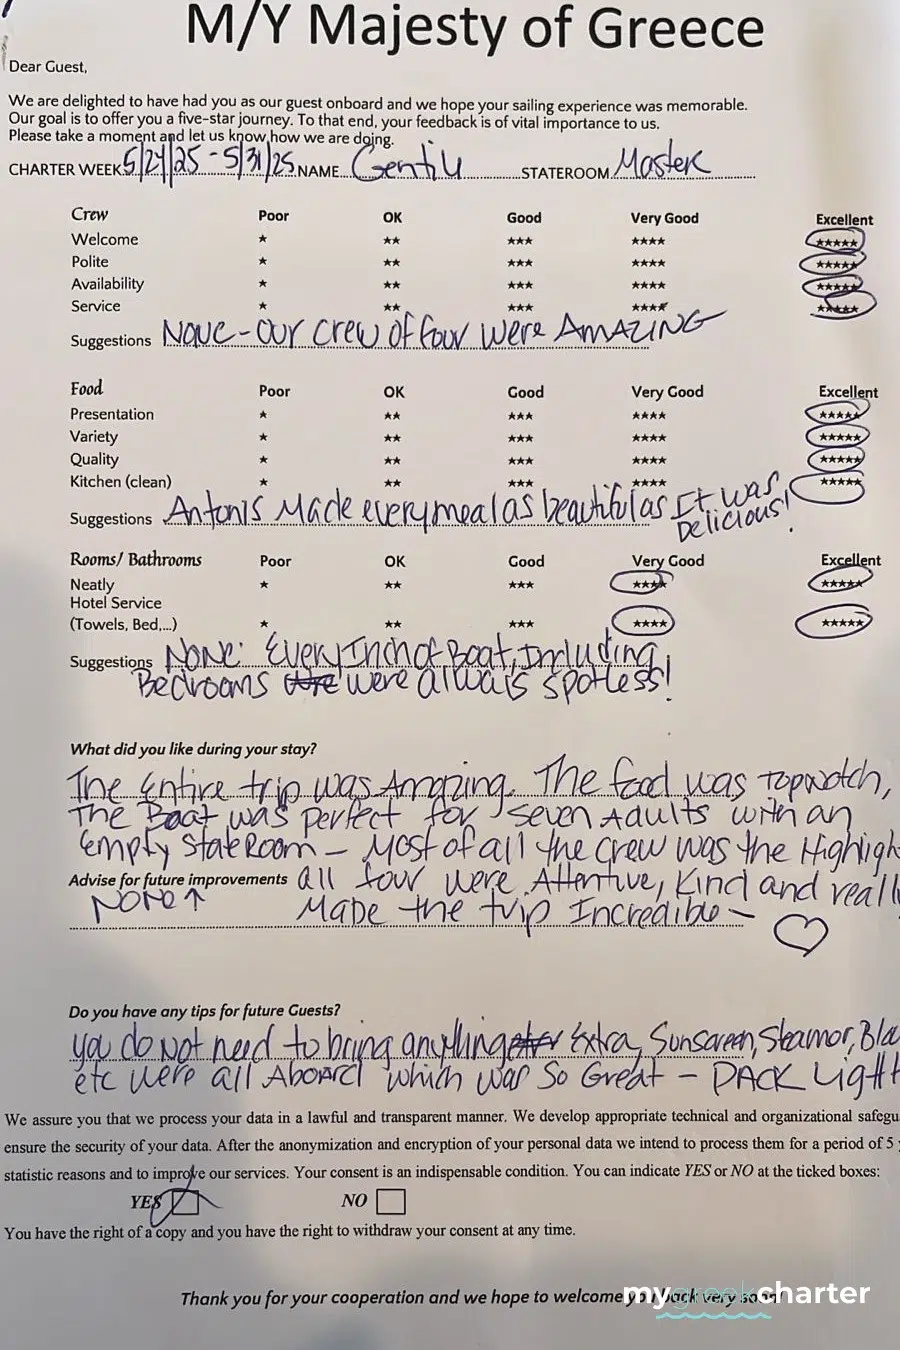 M/Y Majesty of Greece
Dear Guest,
We are delighted to have had you as our guest onboard and we hope your sailing experience was memorable.
Our goal is to offer you a five-star journey. To that end, your feedback is of vital importance to us.
Please take a moment and let us know how we are doing.
CHARTER WEEK 5/24/25 - 5/31/25 NAME Gentile STATEROOM Master
Crew Poor OK Good Very Good Excellent
Welcome ★ ★★ ★★★ ★★★★ ★★★★★
Polite ★ ★★ ★★★ ★★★★ ★★★★★
Availability ★ ★★ ★★★ ★★★★ ★★★★★
Service ★ ★★ ★★★ ★★★★ ★★★★★
Suggestions None - Our crew of four were AMAZING
Food Poor OK Good Very Good Excellent
Presentation ★ ★★ ★★★ ★★★★ ★★★★★
Variety ★ ★★ ★★★ ★★★★ ★★★★★
Quality ★ ★★ ★★★ ★★★★ ★★★★★
Kitchen (clean) ★ ★★ ★★★ ★★★★ ★★★★★
Suggestions Antonis Made every meal as beautiful as It was
Delicious!
Rooms/ Bathrooms Poor OK Good Very Good Excellent
Neatly ★ ★★ ★★★ ★★★★ ★★★★★
Hotel Service
(Towels, Bed,...) ★ ★★ ★★★ ★★★★ ★★★★★
Suggestions NONE: Every Inch of Boat, Including
Bedrooms were always spotless!
What did you like during your stay?
The Entire trip was Amazing. The food was topnotch,
The Boat was perfect for seven Adults with an
empty StateRoom - Most of all the crew was the Highligh
Advise for future improvements all four were Attentive, Kind and really
NONE ↑ Made the trip Incredible -
Do you have any tips for future Guests?
you do not need to bring anything Extra, Sunscreen, Steamor, Blo
etc were all Aboard which was so Great - PACK Light
We assure you that we process your data in a lawful and transparent manner. We develop appropriate technical and organizational safegu
ensure the security of your data. After the anonymization and encryption of your personal data we intend to process them for a period of 5 y
statistic reasons and to improve our services. Your consent is an indispensable condition. You can indicate YES or NO at the ticked boxes:
YES NO
You have the right of a copy and you have the right to withdraw your consent at any time.
Thank you for your cooperation and we hope to welcome you back very soon!
mygreekcharter